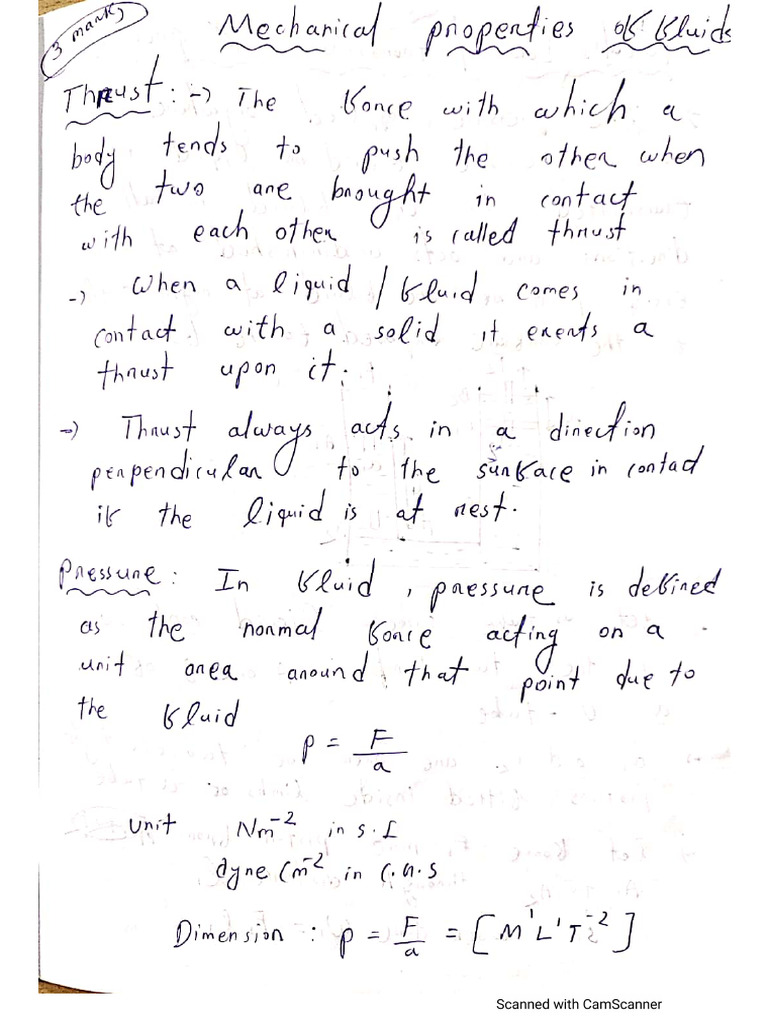 3 marks
Mechanical properties of fluids
Thrust : -> The force with which a
body tends to push the other when
the two are brought in contact
with each other is called thrust
-> When a liquid / fluid comes in
contact with a solid it exerts a
thrust upon it.
-> Thrust always acts in a direction
perpendicular to the surface in contact
if the liquid is at rest.
Pressure : In fluid , pressure is defined
as the normal force acting on a
unit area around that point due to
the fluid
P = F/a
Unit Nm⁻² in S.I
dyne cm⁻² in C.G.S
Dimension : P = F/a = [M¹L¹T⁻²]
Scanned with CamScanner